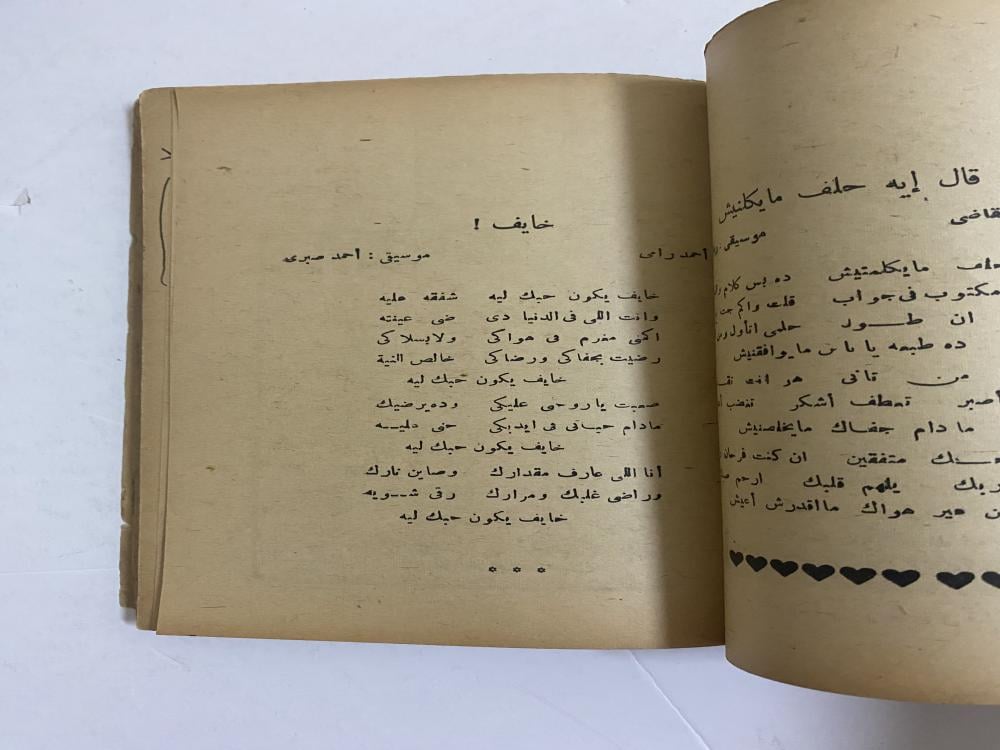 خايف !
أحمد رامى    موسيقى : أحمد صبرى
خايف يكون حبك ليه    شفقه عليه
وانت اللى فى الدنيا دى    ضى عينيه
اكمنى مغرم فى هواكى    ولابسلاكى
رضيت بجفاكى ورضاكى    خالص النية
خايف يكون حبك ليه
صعبت ياروحى عليكى    وده يرضيك
مادام حياتى فى ايديكى    حنى عليه
خايف يكون حبك ليه
أنا اللى عارف مقدارك    وصاين نارك
وراضى غلبك ومرارك    رقى شويه
خايف يكون حبك ليه
* * *
قال إيه حلف مايكلمنيش
موسيقى
مايكلمتيش    ده بس كلام
مكتوب فى جواب    قلت واكم جت
ان طول    حلمى اتأول
ده طبعه يا ناس مايوافقنيش
من تانى    هو انت
أصبر    تعطف أشكر    تغضب
ما دام جفاك مايخلصنيش
متفقين    ان كنت فرحان
يلهم قلبك    ارحم
غير هواك مااقدرش أعيش